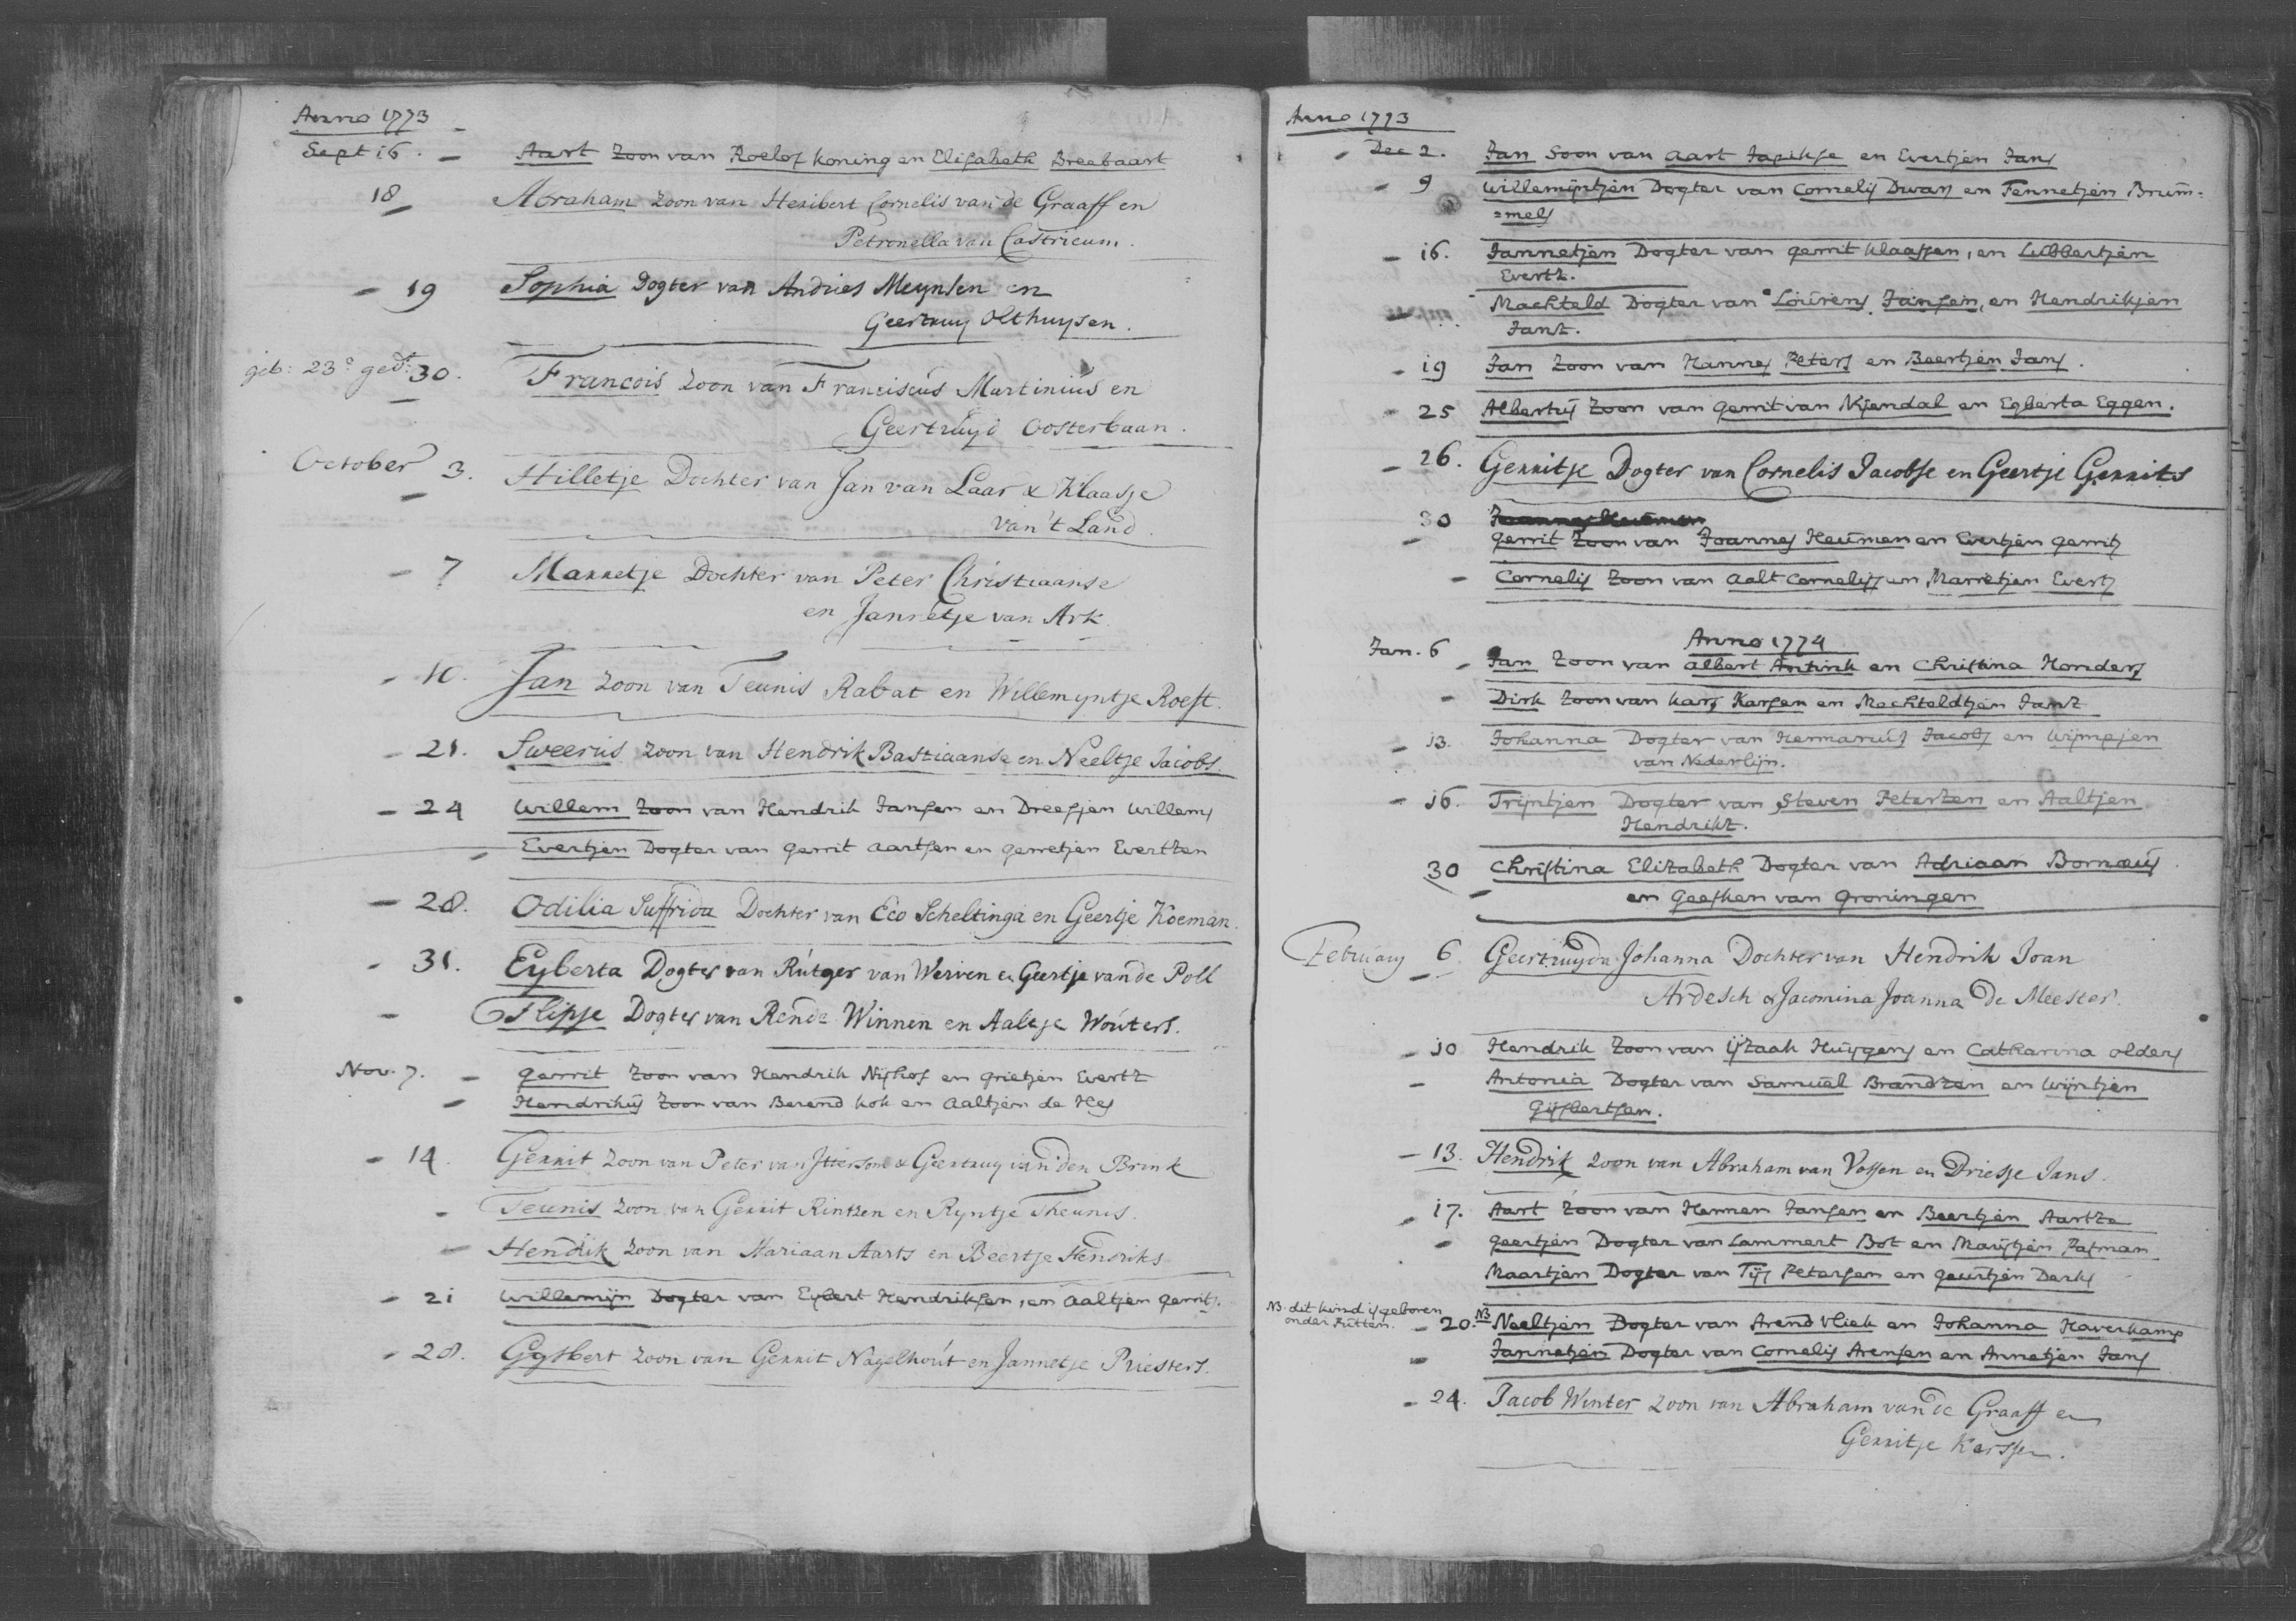 Anno 1773
Sept 16. Aart Zoon van Roelof Koning en Elisabeth Breebaart
18 Abraham Zoon van Heribert Cornelis van de Graaff en
Petronella van Castricum.
19 Sophia Dogter van Andries Meynsen en
Geertruy Olthuysen.
geb: 23e gedt: 30. Francois Zoon van Franciscus Martinius en
Geertruyd Oosterbaan.
October 3. Hilletje Dochter van Jan van Laar & Klaasje
van 't Land.
7 Marretje Dochter van Peter Christiaanse
en Jannetje van Ark.
10. Jan Zoon van Teunis Rabat en Willemyntje Roest.
21. Sweerus Zoon van Hendrik Bastiaanse en Neeltje Jacobs.
24 Willem Zoon van Hendrik Jansen en Dreesjen Willems
Evertjen Dogter van Gerrit Aartsen en Gerretjen Evertzen
28. Odilia Suffrida Dochter van Eco Scheltinga en Geertje Koeman.
31. Eyberta Dogter van Rutger van Werven en Geertje van de Poll
Flipje Dogter van Rende Winnen en Aaltje Wouters.
Nov. 7. Gerrit Zoon van Hendrik Nijhof en Grietjen Evertz
Hendrikus Zoon van Berend Kok en Aaltjen de Hes
14. Gerrit Zoon van Peter van Ittersom & Geertruy van den Brink
Teunis Zoon van Gerrit Rintzen en Ryntje Theunis.
Hendrik Zoon van Mariaan Aarts en Beertje Hendriks
21 Willemijn Dogter van Eybert Hendriksen, en Aaltjen Gerrits.
28. Gysbert Zoon van Gerrit Nagelhout en Jannetje Priesters.
Anno 1773
Dec 2. Jan Soon van Aart Japikse en Evertjen Jans
9 Willemijntjen Dogter van Cornelis Dwars en Fennetjen Brum=
=mels
16. Jannetjen Dogter van Gerrit Klaassen, en Lubbertjen
Evertz.
Machteld Dogter van Lourens Jansen, en Hendrikjen
Jansz.
19 Jan Zoon van Hannes Peters en Beertjen Jans.
25 Albertus Zoon van Gerrit van Nijendal en Egberta Eggen.
26. Gerritje Dogter van Cornelis Jacobse en Geertje Gerrits
30 Joannes Heumen
Gerrit Zoon van Joannes Heumen en Evertjen Gerrits
Cornelis Zoon van Aalt Cornelissen Marretjen Evertz
Anno 1774
Jan. 6 Jan Zoon van Albert Antink en Christina Honders
Dirk Zoon van Kars Karsen en Machteldtjen Jansz
13. Johanna Dogter van Hermanus Jacobs en Wijmpjen
van Nederlijn.
16. Trijntjen Dogter van Steven Peterzen en Aaltjen
Hendrikz.
30 Christina Elizabeth Dogter van Adriaan Bornæus
en Geesken van Groningen
February 6. Geertruyda Johanna Dochter van Hendrik Joan
Ardesch & Jacomina Joanna De Meester.
10 Hendrik Zoon van Yzaak Huygens en Catharina Olders
Antonia Dogter van Samuel Brandzen en Wijntjen
Gijsbertsen.
13. Hendrik Zoon van Abraham van Vossen en Driesje Jans.
17. Aart Zoon van Hermen Jansen en Beertjen Aartze
Geertjen Dogter van Lammert Bot en Marijtjen Pasman
Maartjen Dogter van Tijs Petersen en Geurtjen Derks
NB. dit kind is geboren
onder Putten. 20. NB Neeltjen Dogter van Arend Vliek en Johanna Haverkamp
Jannetjen Dogter van Cornelis Arensen en Annetjen Jans
24. Jacob Winter Zoon van Abraham van de Graaff en
Gerritje Karssen.